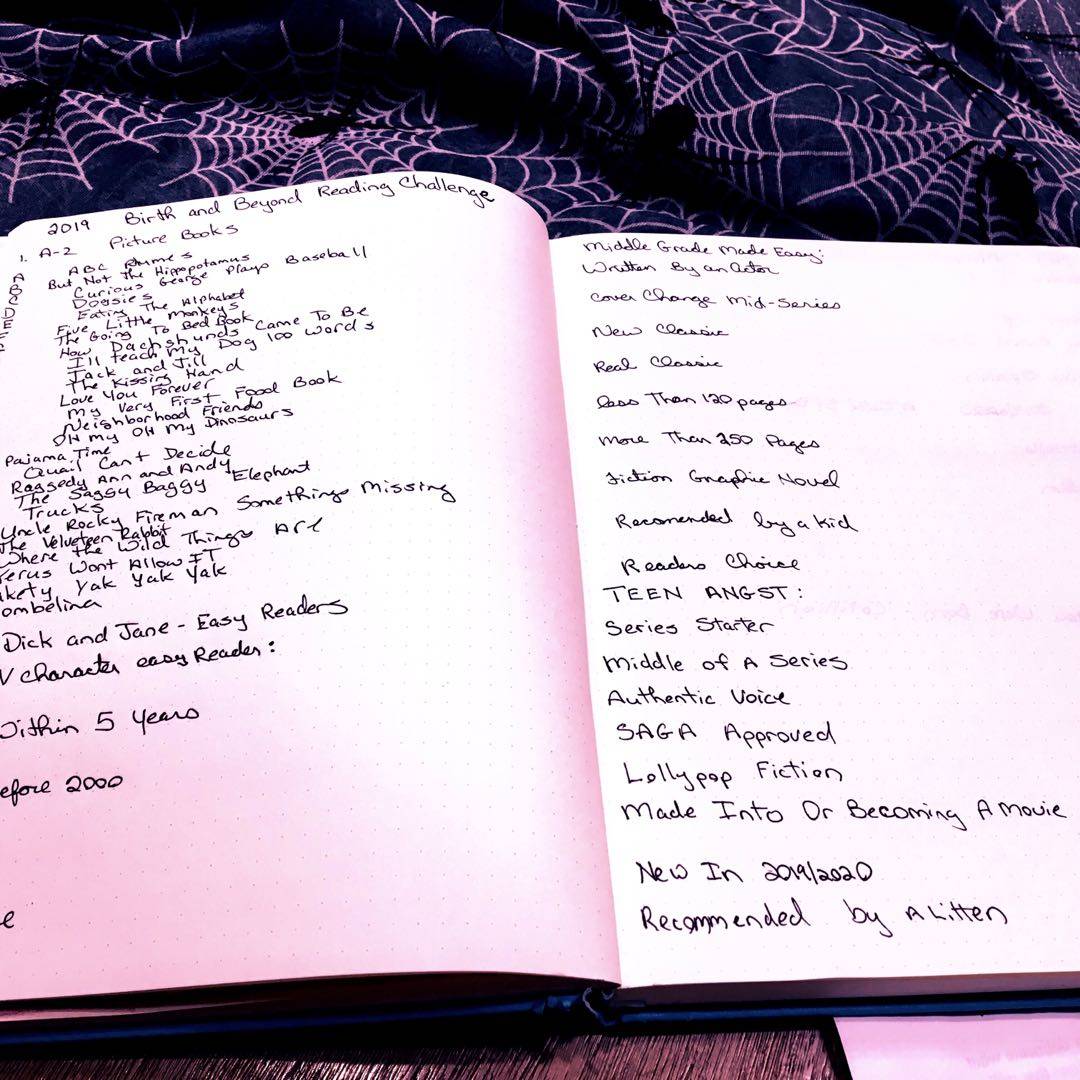 2019 Birth and Beyond Reading Challenge
1. A-Z Picture Books
A ABC Rhymes
B But Not The Hippopotamus
C Curious George Plays Baseball
D Doggies
E Eating The Alphabet
Five Little Monkeys
The Going To Bed Book
How Dachshunds Came To Be
I'll teach My Dog 100 Words
Jack and Jill
The Kissing Hand
Love You Forever
My Very First Food Book
Neighborhood Friends
OH my OH my Dinosaurs
Pajama Time
Quail Can't Decide
Raggedy Ann and Andy
The Saggy Baggy Elephant
Trucks
Uncle Rocky Fireman Somethings Missing
The Velveteen Rabbit
Where the Wild Things Are
erus Wont Allow IT
kety Yak Yak Yak
ombelina
Dick and Jane - Easy Readers
V character easy Reader:
Within 5 Years
efore 2000
e
Middle Grade Made Easy:
Written By an actor
Cover Change Mid-Series
New Classic
Real Classic
less Than 120 pages
More Than 250 Pages
Fiction Graphic Novel
Recomended by a kid
Readers Choice
TEEN ANGST:
Series Starter
Middle of A Series
Authentic Voice
SAGA Approved
Lollypop Fiction
Made Into Or Becoming A Movie
New In 2019/2020
Recommended by A Litten